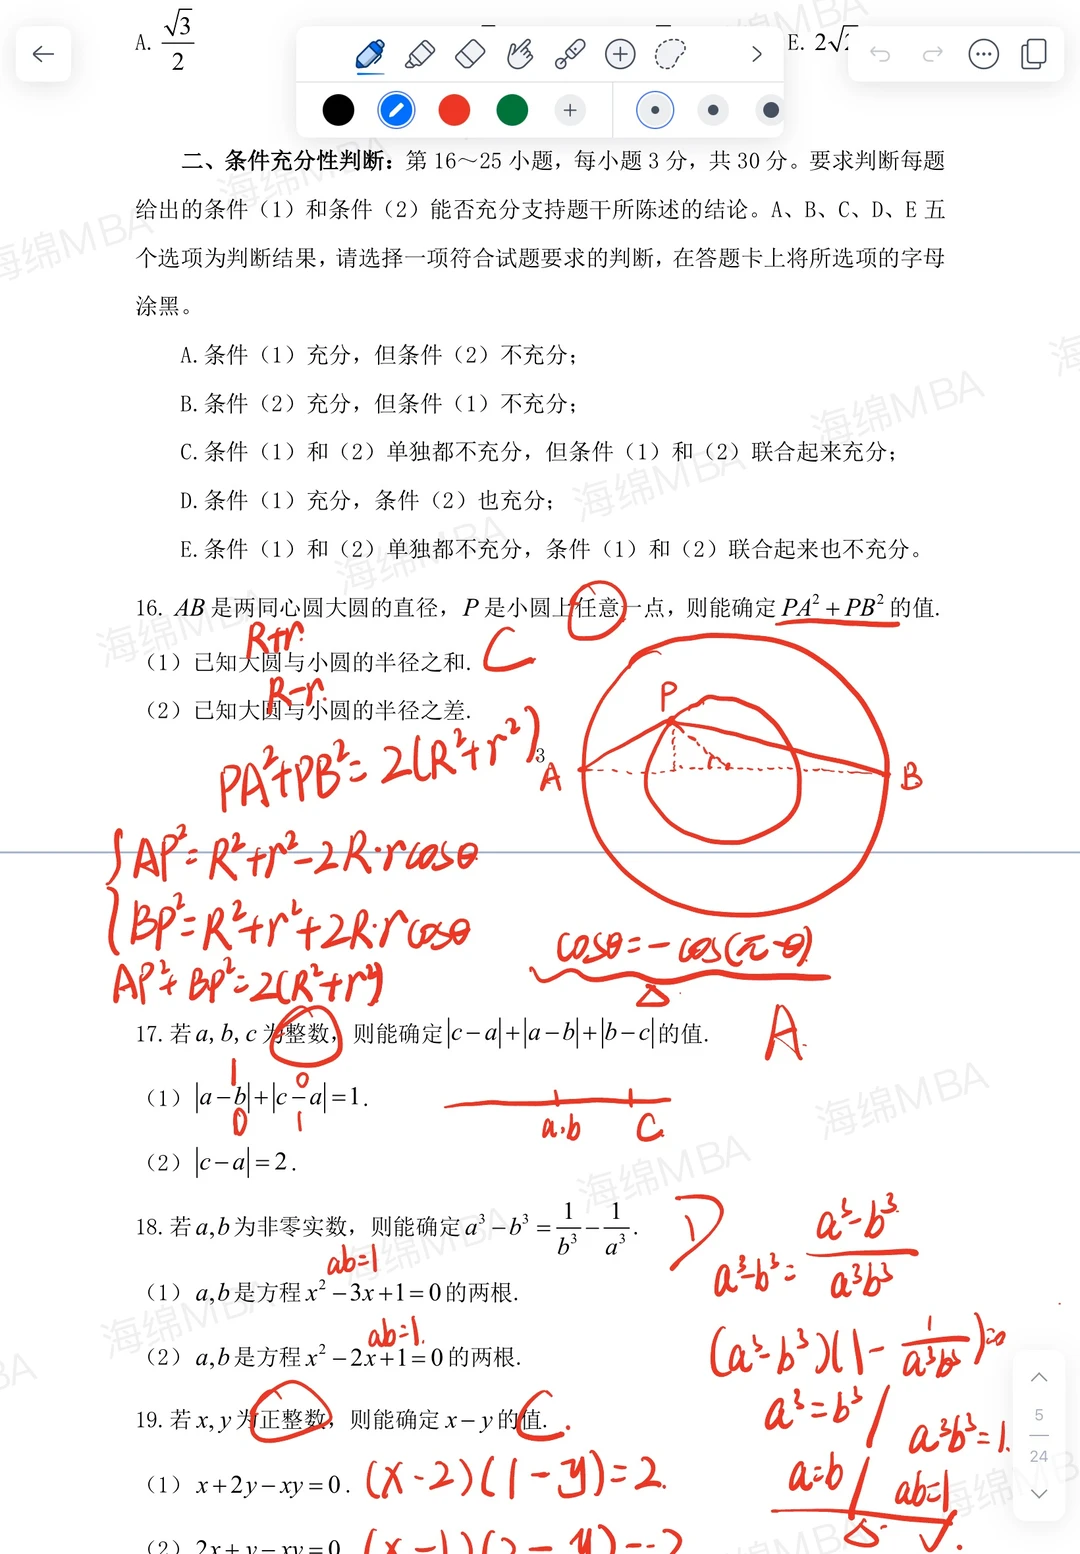 A. √3/2
E. 2√2
二、条件充分性判断：第 16～25 小题，每小题 3 分，共 30 分。要求判断每题
给出的条件（1）和条件（2）能否充分支持题干所陈述的结论。A、B、C、D、E 五
个选项为判断结果，请选择一项符合试题要求的判断，在答题卡上将所选项的字母
涂黑。
A.条件（1）充分，但条件（2）不充分；
B.条件（2）充分，但条件（1）不充分；
C.条件（1）和（2）单独都不充分，但条件（1）和（2）联合起来充分；
D.条件（1）充分，条件（2）也充分；
E.条件（1）和（2）单独都不充分，条件（1）和（2）联合起来也不充分。
16. AB 是两同心圆大圆的直径，P 是小圆上任意一点，则能确定 PA²＋PB² 的值.
R+r.
C
（1）已知大圆与小圆的半径之和.
R-r.
（2）已知大圆与小圆的半径之差.
P
A
r
B
PA²+PB²=2(R²+r²)
3
AP²=R²+r²-2R·rcosθ
BP²=R²+r²+2R·rcosθ
cosθ=-cos(π-θ)
AP²+BP²=2(R²+r²)
17. 若 a, b, c 为整数，则能确定 |c－a|＋|a－b|＋|b－c| 的值.
A.
1 0
（1）|a－b|＋|c－a|＝1.
0 1
a,b C
（2）|c－a|＝2.
18. 若 a,b 为非零实数，则能确定 a³－b³＝1/b³－1/a³.
D
a³-b³=(a³-b³)/(a³b³)
ab=1
（1）a,b 是方程 x²－3x＋1＝0 的两根.
ab=1.
（2）a,b 是方程 x²－2x＋1＝0 的两根.
(a³-b³)(1-1/(a³b³))=0
a³=b³ / a³b³=1.
a=b / ab=1
19. 若 x, y 为正整数，则能确定 x－y 的值.
C.
（1）x＋2y－xy＝0. (x-2)(1-y)=2.
（2）2x＋y－xy＝0 (x-1)(2-y)=-2
5
24
海绵MBA
海绵MBA
海绵MBA
海绵MBA
海绵MBA
海绵MBA
海绵MBA
海绵MBA
海绵MBA
海绵MBA